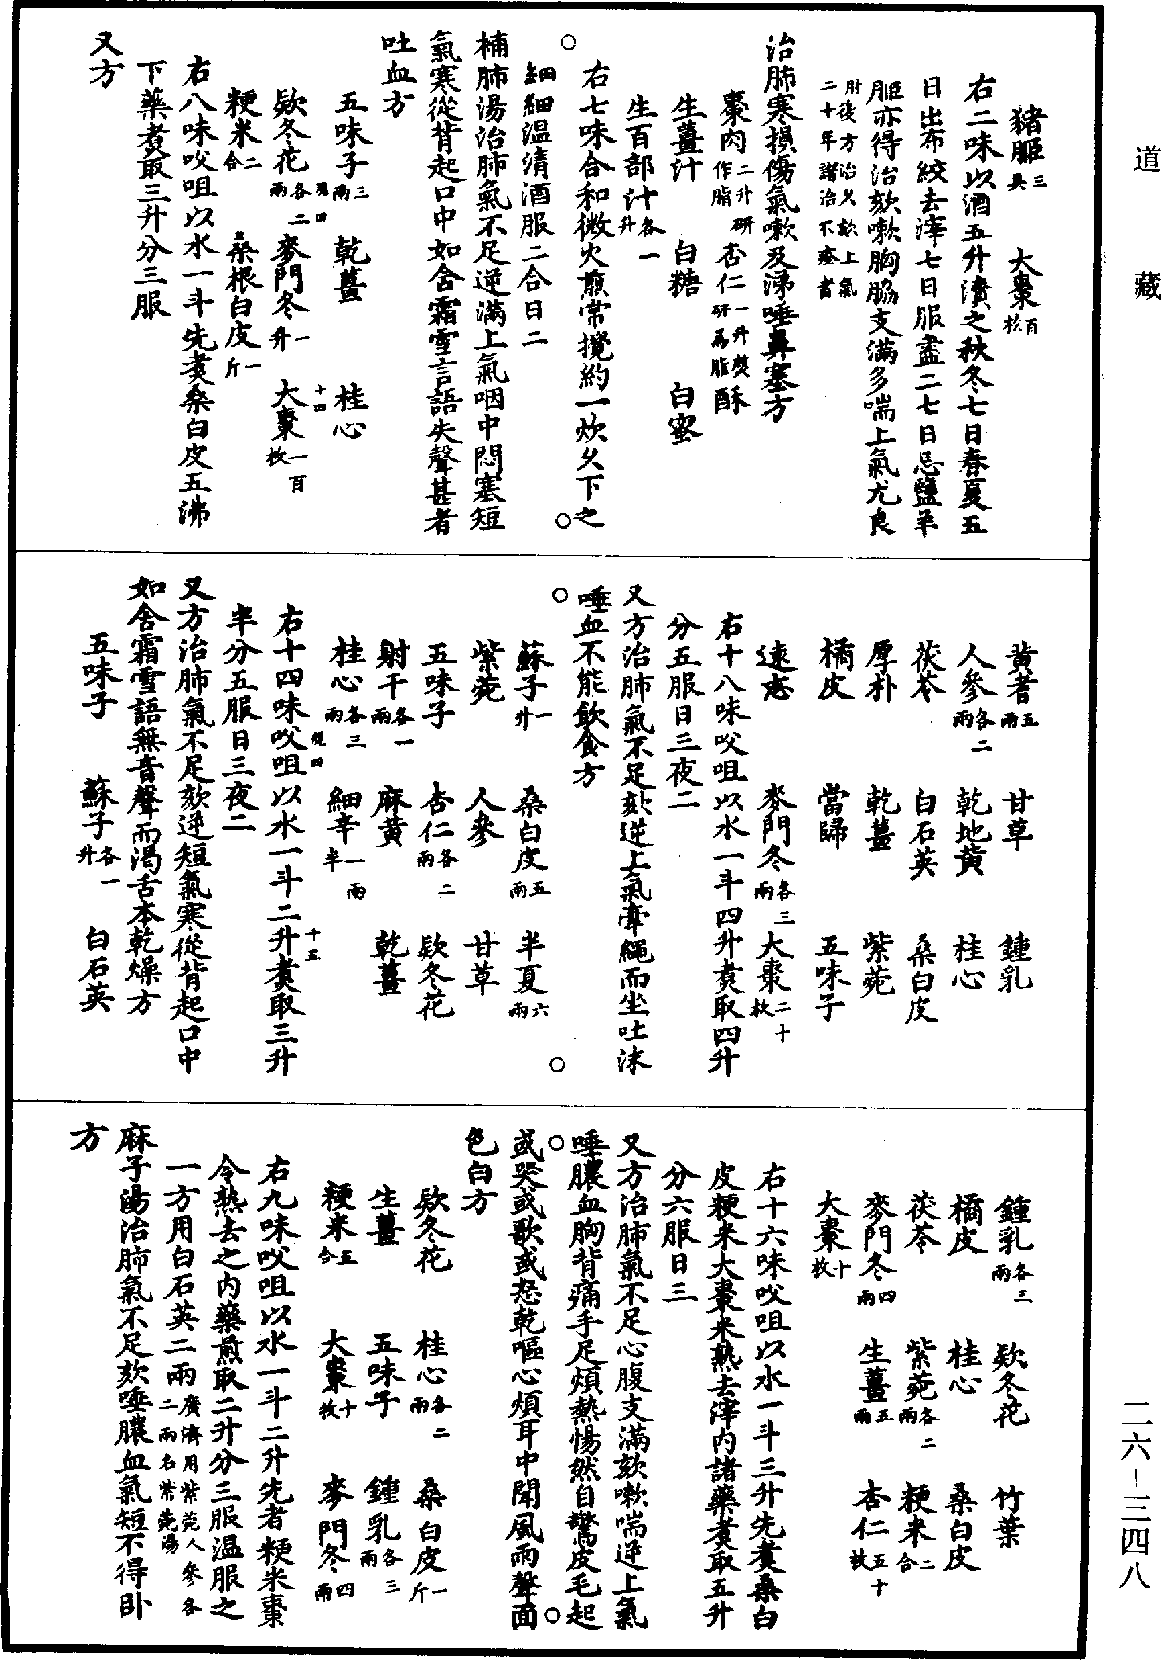 道藏
猪胵三具　大棗百枚
右二味以酒五升漬之秋冬七日春夏五
日出布絞去滓七日服盡二七日忌鹽羊
胵亦得治欬嗽胸脇支滿多喘上氣尤良
肘後方治久欬上氣
二十年諸治不瘥者
治肺寒損傷氣嗽及涕唾鼻塞方
棗肉二升研作脂　杏仁一升熬研爲脂　酥
生薑汁　白糖　白蜜
生百部汁各一升
右七味合和微火煎常攪約一炊久下之
細細温清酒服二合日二
補肺湯治肺氣不足逆滿上氣咽中悶塞短
氣寒從背起口中如含霜雪言語失聲甚者
吐血方
五味子三兩　乾薑　桂心
欵冬花各二兩　麥門冬一升　大棗一百枚
粳米二合　桑根白皮一斤
右八味㕮咀以水一斗先煑桑白皮五沸
下藥煑取三升分三服
又方
黃耆五兩　甘草　鍾乳
人參各二兩　乾地黃　桂心
茯苓　白石英　桑白皮
厚朴　乾薑　紫菀
橘皮　當歸　五味子
遠志　麥門冬各三兩　大棗二十枚
右十八味㕮咀以水一斗四升煑取四升
分五服日三夜二
又方治肺氣不足欬逆上氣牽繩而坐吐沫
唾血不能飲食方
蘇子一升　桑白皮五兩　半夏六兩
紫菀　人參　甘草
五味子　杏仁各二兩　欵冬花
射干各一兩　麻黃　乾薑
桂心各三兩　細辛一兩半
右十四味㕮咀以水一斗二升煑取三升
半分五服日三夜二
又方治肺氣不足欬逆短氣寒從背起口中
如含霜雪語無音聲而渴舌本乾燥方
五味子　蘇子各一升　白石英
鍾乳各三兩　欵冬花　竹葉
橘皮　桂心　桑白皮
茯苓　紫菀各二兩　粳米二合
麥門冬四兩　生薑五兩　杏仁五十枚
大棗十枚
右十六味㕮咀以水一斗三升先煑桑白
皮粳米大棗米熟去滓内諸藥煑取五升
分六服日三
又方治肺氣不足心腹支滿欬嗽喘逆上氣
唾膿血胸背痛手足煩熱惕然自驚皮毛起
或哭或歌或怒乾嘔心煩耳中聞風雨聲面
色白方
欵冬花　桂心各二兩　桑白皮一斤
生薑　五味子　鍾乳各三兩
粳米五合　大棗十枚　麥門冬四兩
右九味㕮咀以水一斗二升先煮粳米棗
令熟去之内藥煎取二升分三服温服之
一方用白石英二兩廣濟用紫菀人參各二兩名紫菀湯
麻子湯治肺氣不足欬唾膿血氣短不得卧
方
二六－三四八